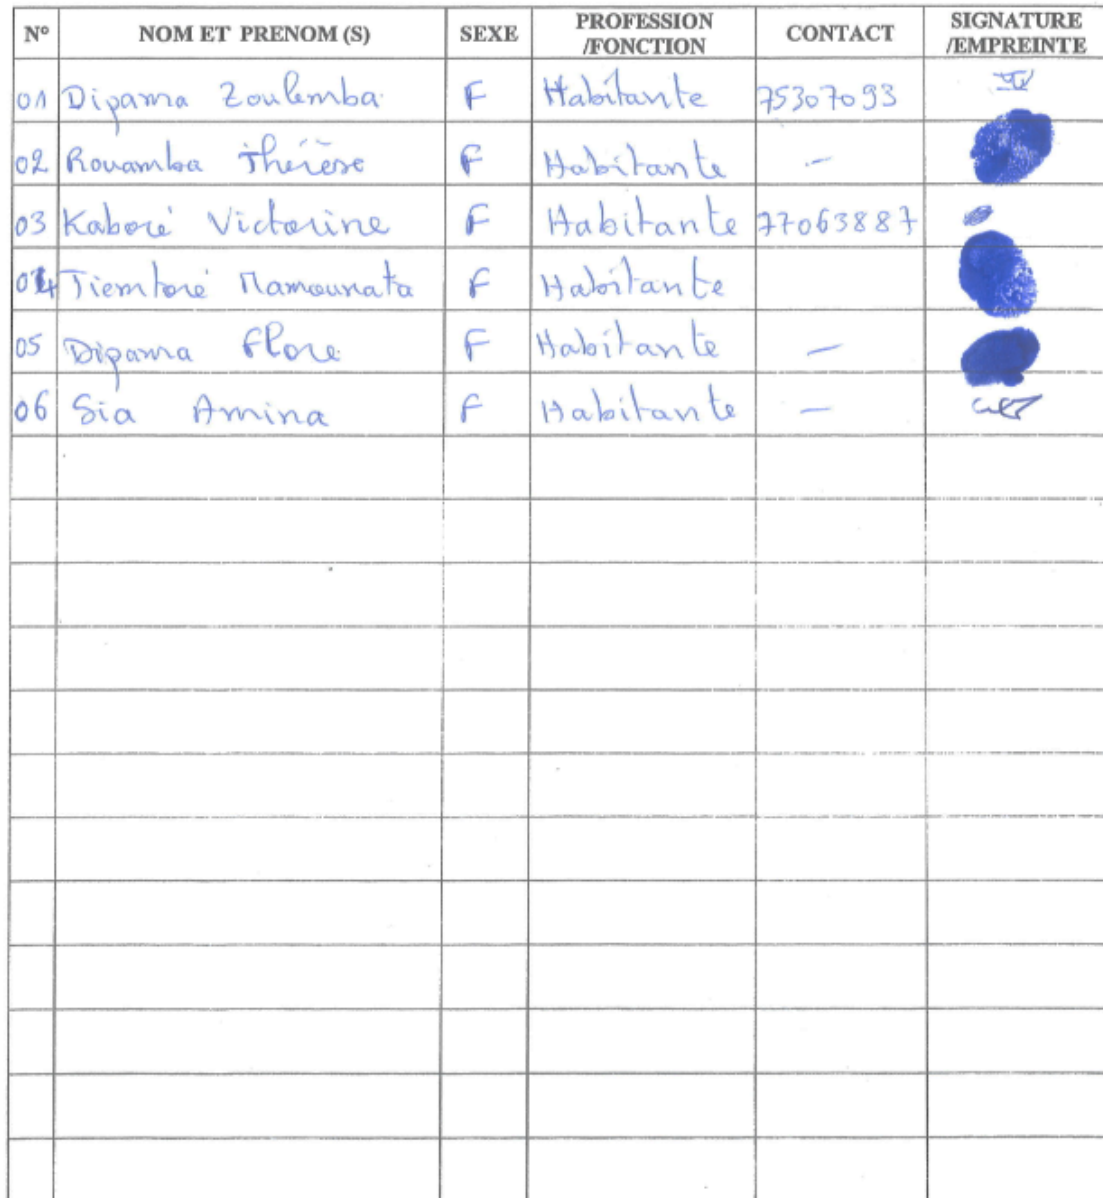 N° NOM ET PRENOM (S) SEXE PROFESSION /FONCTION CONTACT SIGNATURE /EMPREINTE
01 Dipama Zoulemba F Habitante 75307093
02 Rouamba Thérèse F Habitante -
03 Kaboré Victorine F Habitante 77063887
04 Tiemtoré Mamounata F Habitante
05 Dipama Flore F Habitante -
06 Sia Amina F Habitante -